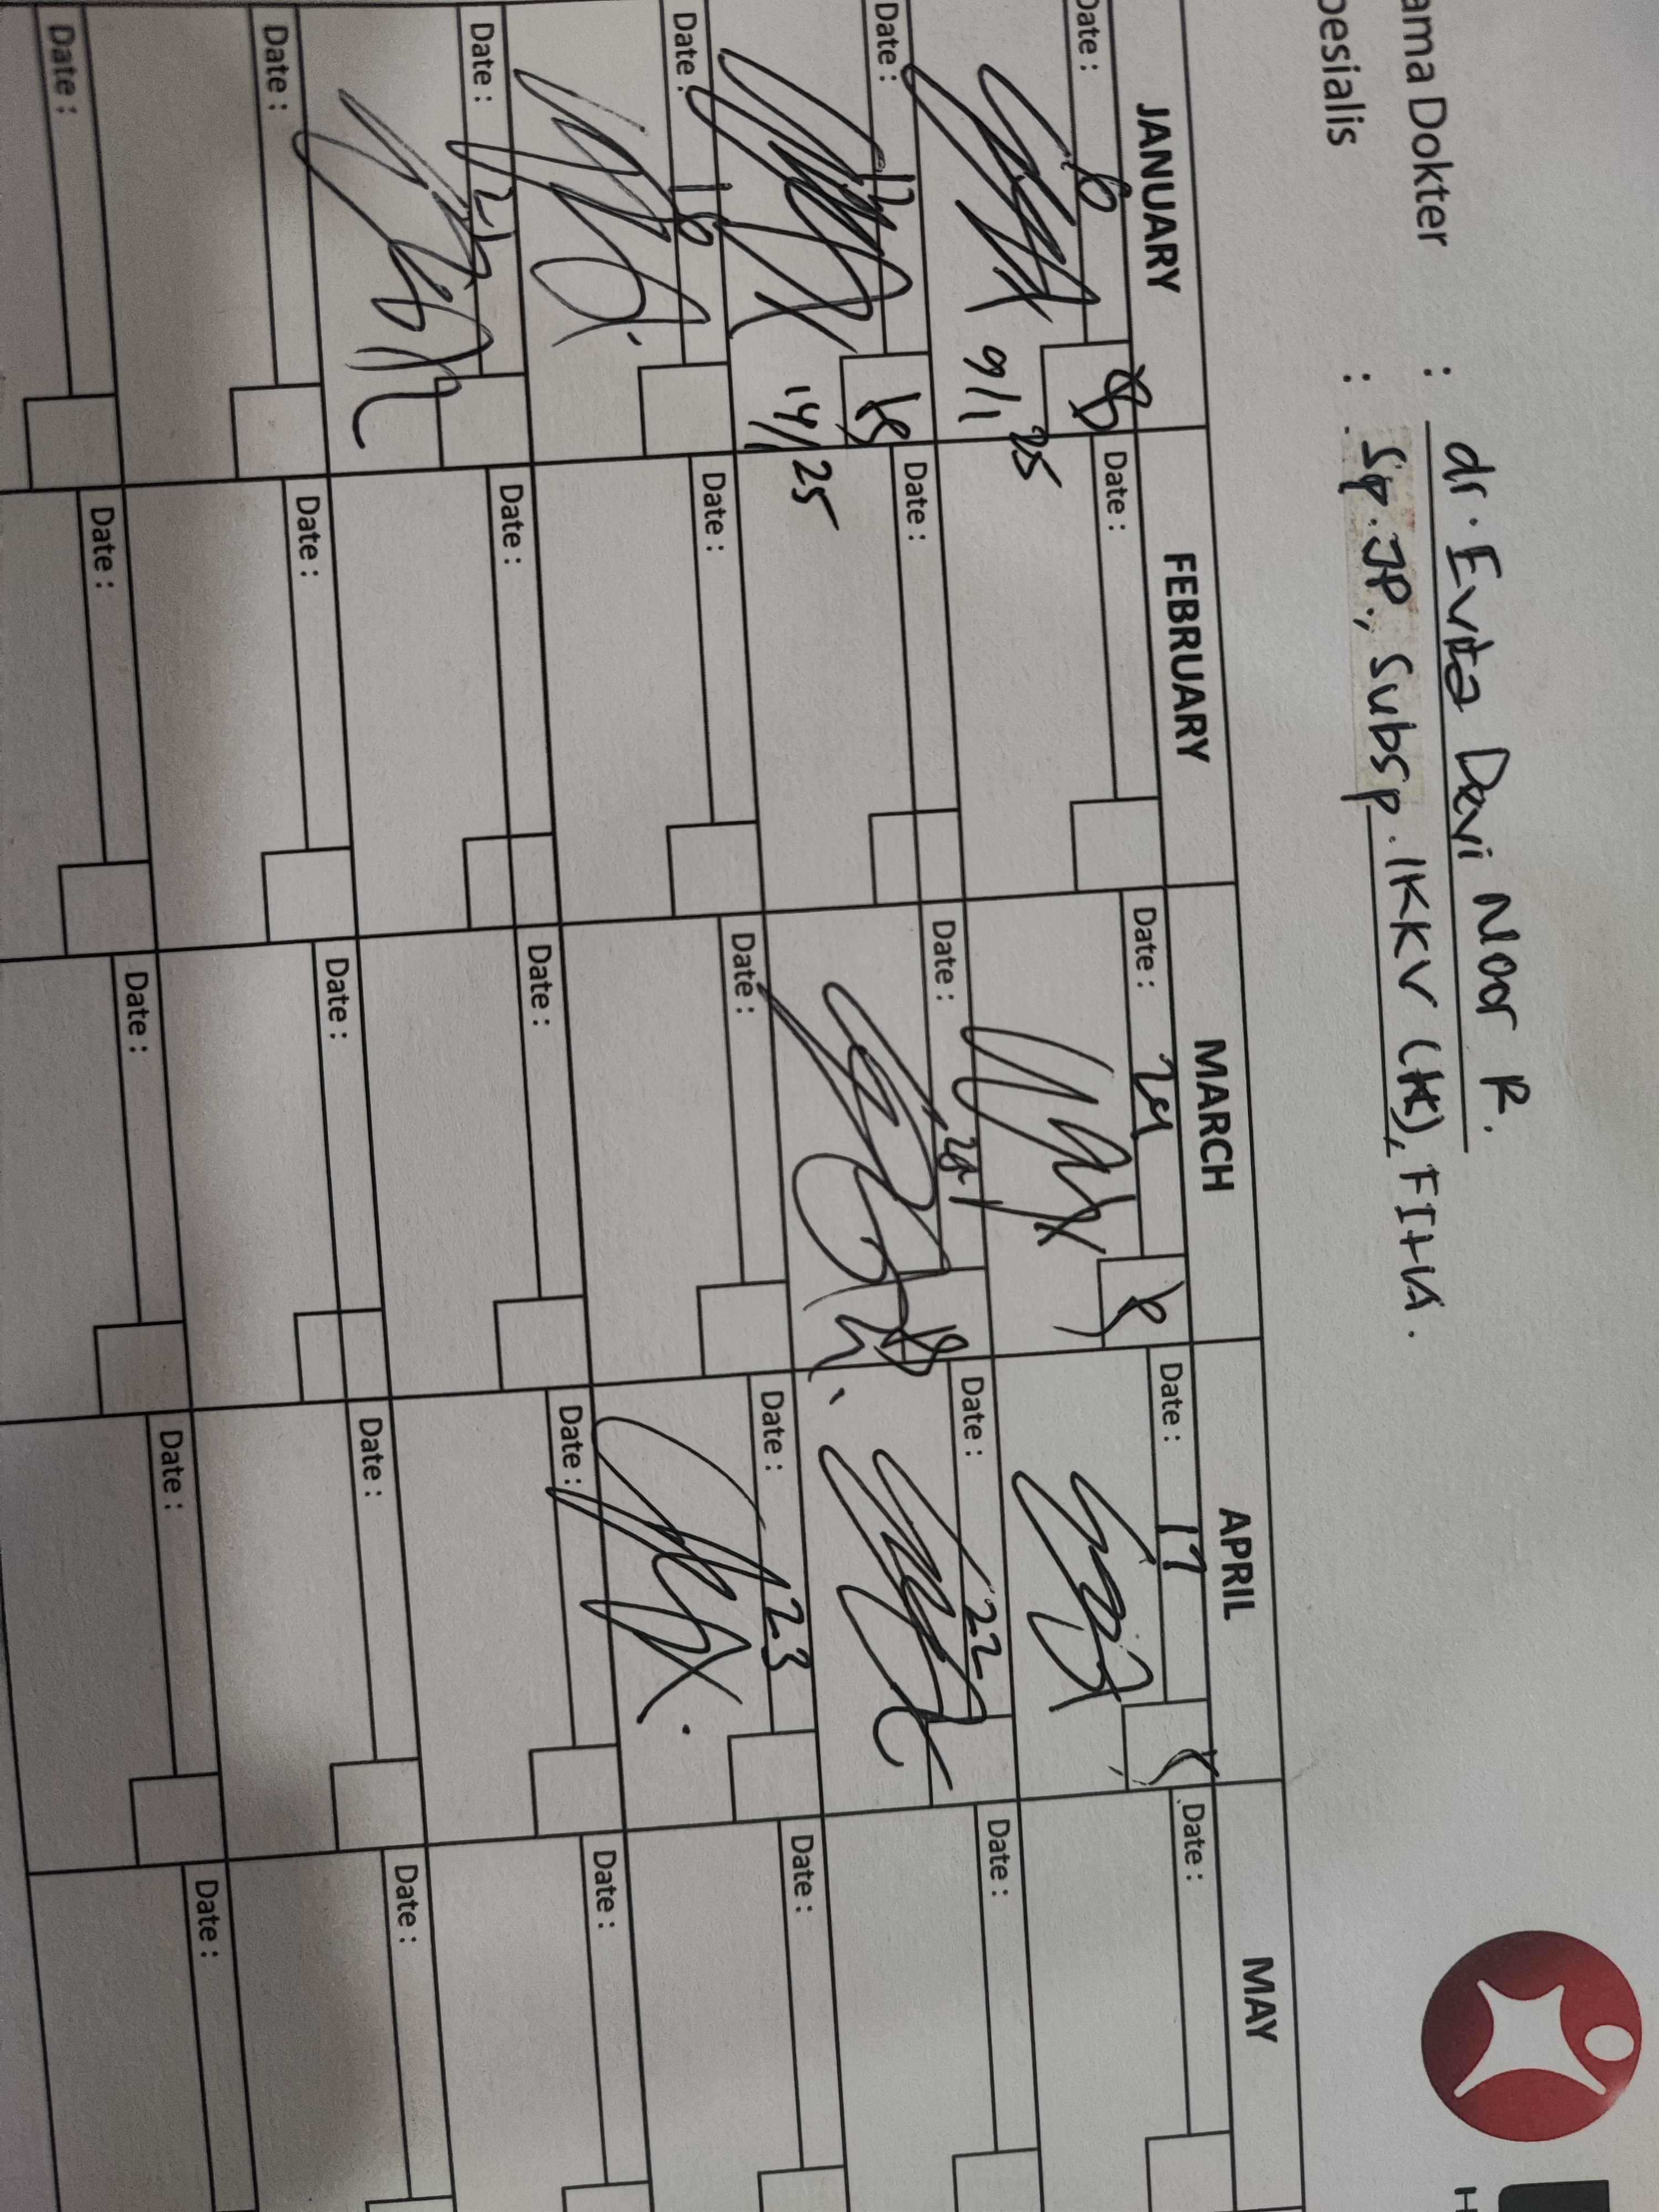 ama Dokter : dr. Evita Devi Noor R.
pesialis : Sp.JP., Subsp.IKKV (K), FIHA.
JANUARY FEBRUARY MARCH APRIL MAY
Date : 8 Date : Date : 24 Date : 17 Date :
9/1 25
Date : 13 Date : Date : 26 Date : 22 Date :
14/1 25
Date : 16 Date : Date : Date : 23 Date :
Date : 21 Date : Date : Date : Date :
Date : Date : Date : Date : Date :
Date : Date : Date : Date : Date :